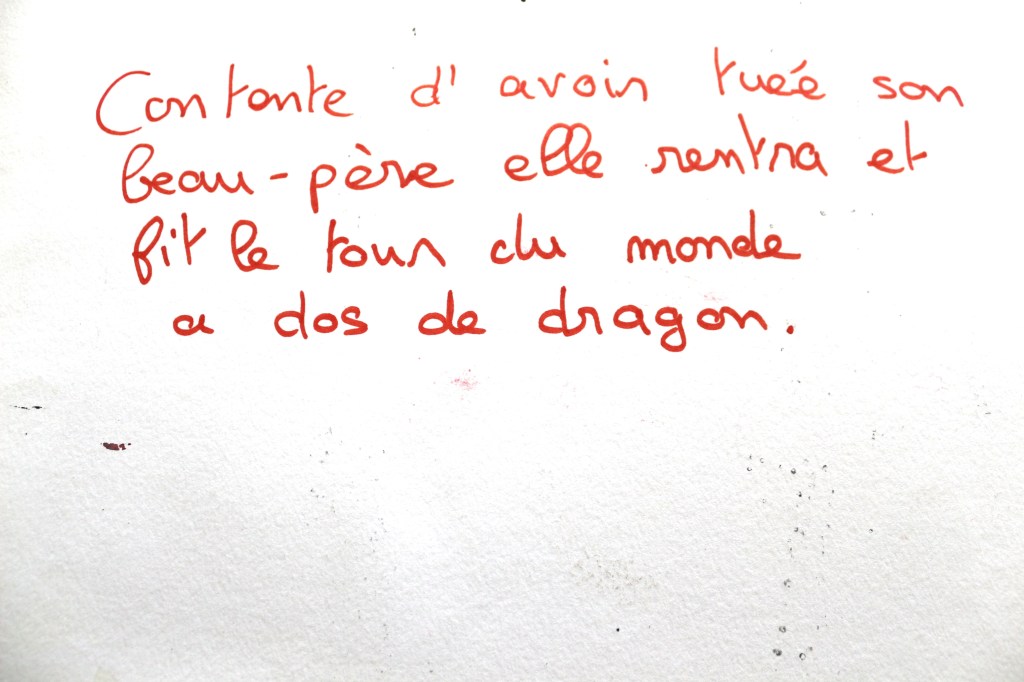 Contonte d'avoir tuée son
beau-père elle rentra et
fit le tour du monde
a dos de dragon.